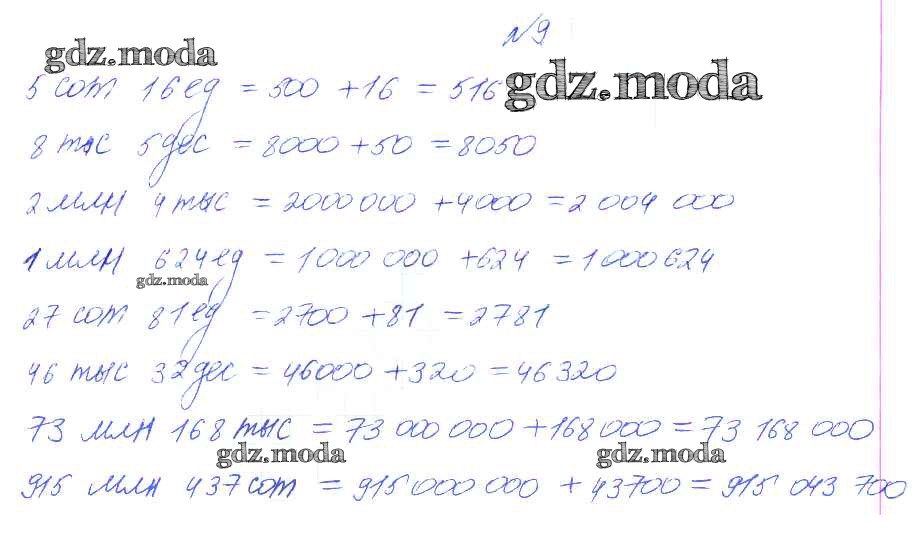 №9
gdz.moda
5 сот 16 ед = 500 + 16 = 516
gdz.moda
8 тыс 5 дес = 8000 + 50 = 8050
2 млн 4 тыс = 2000 000 + 4000 = 2 004 000
1 млн 624 ед = 1000 000 + 624 = 1 000 624
gdz.moda
27 сот 81 ед = 2700 + 81 = 2781
46 тыс 32 дес = 46000 + 320 = 46320
73 млн 168 тыс = 73 000 000 + 168 000 = 73 168 000
gdz.moda gdz.moda
915 млн 437 сот = 915 000 000 + 43700 = 915 043 700